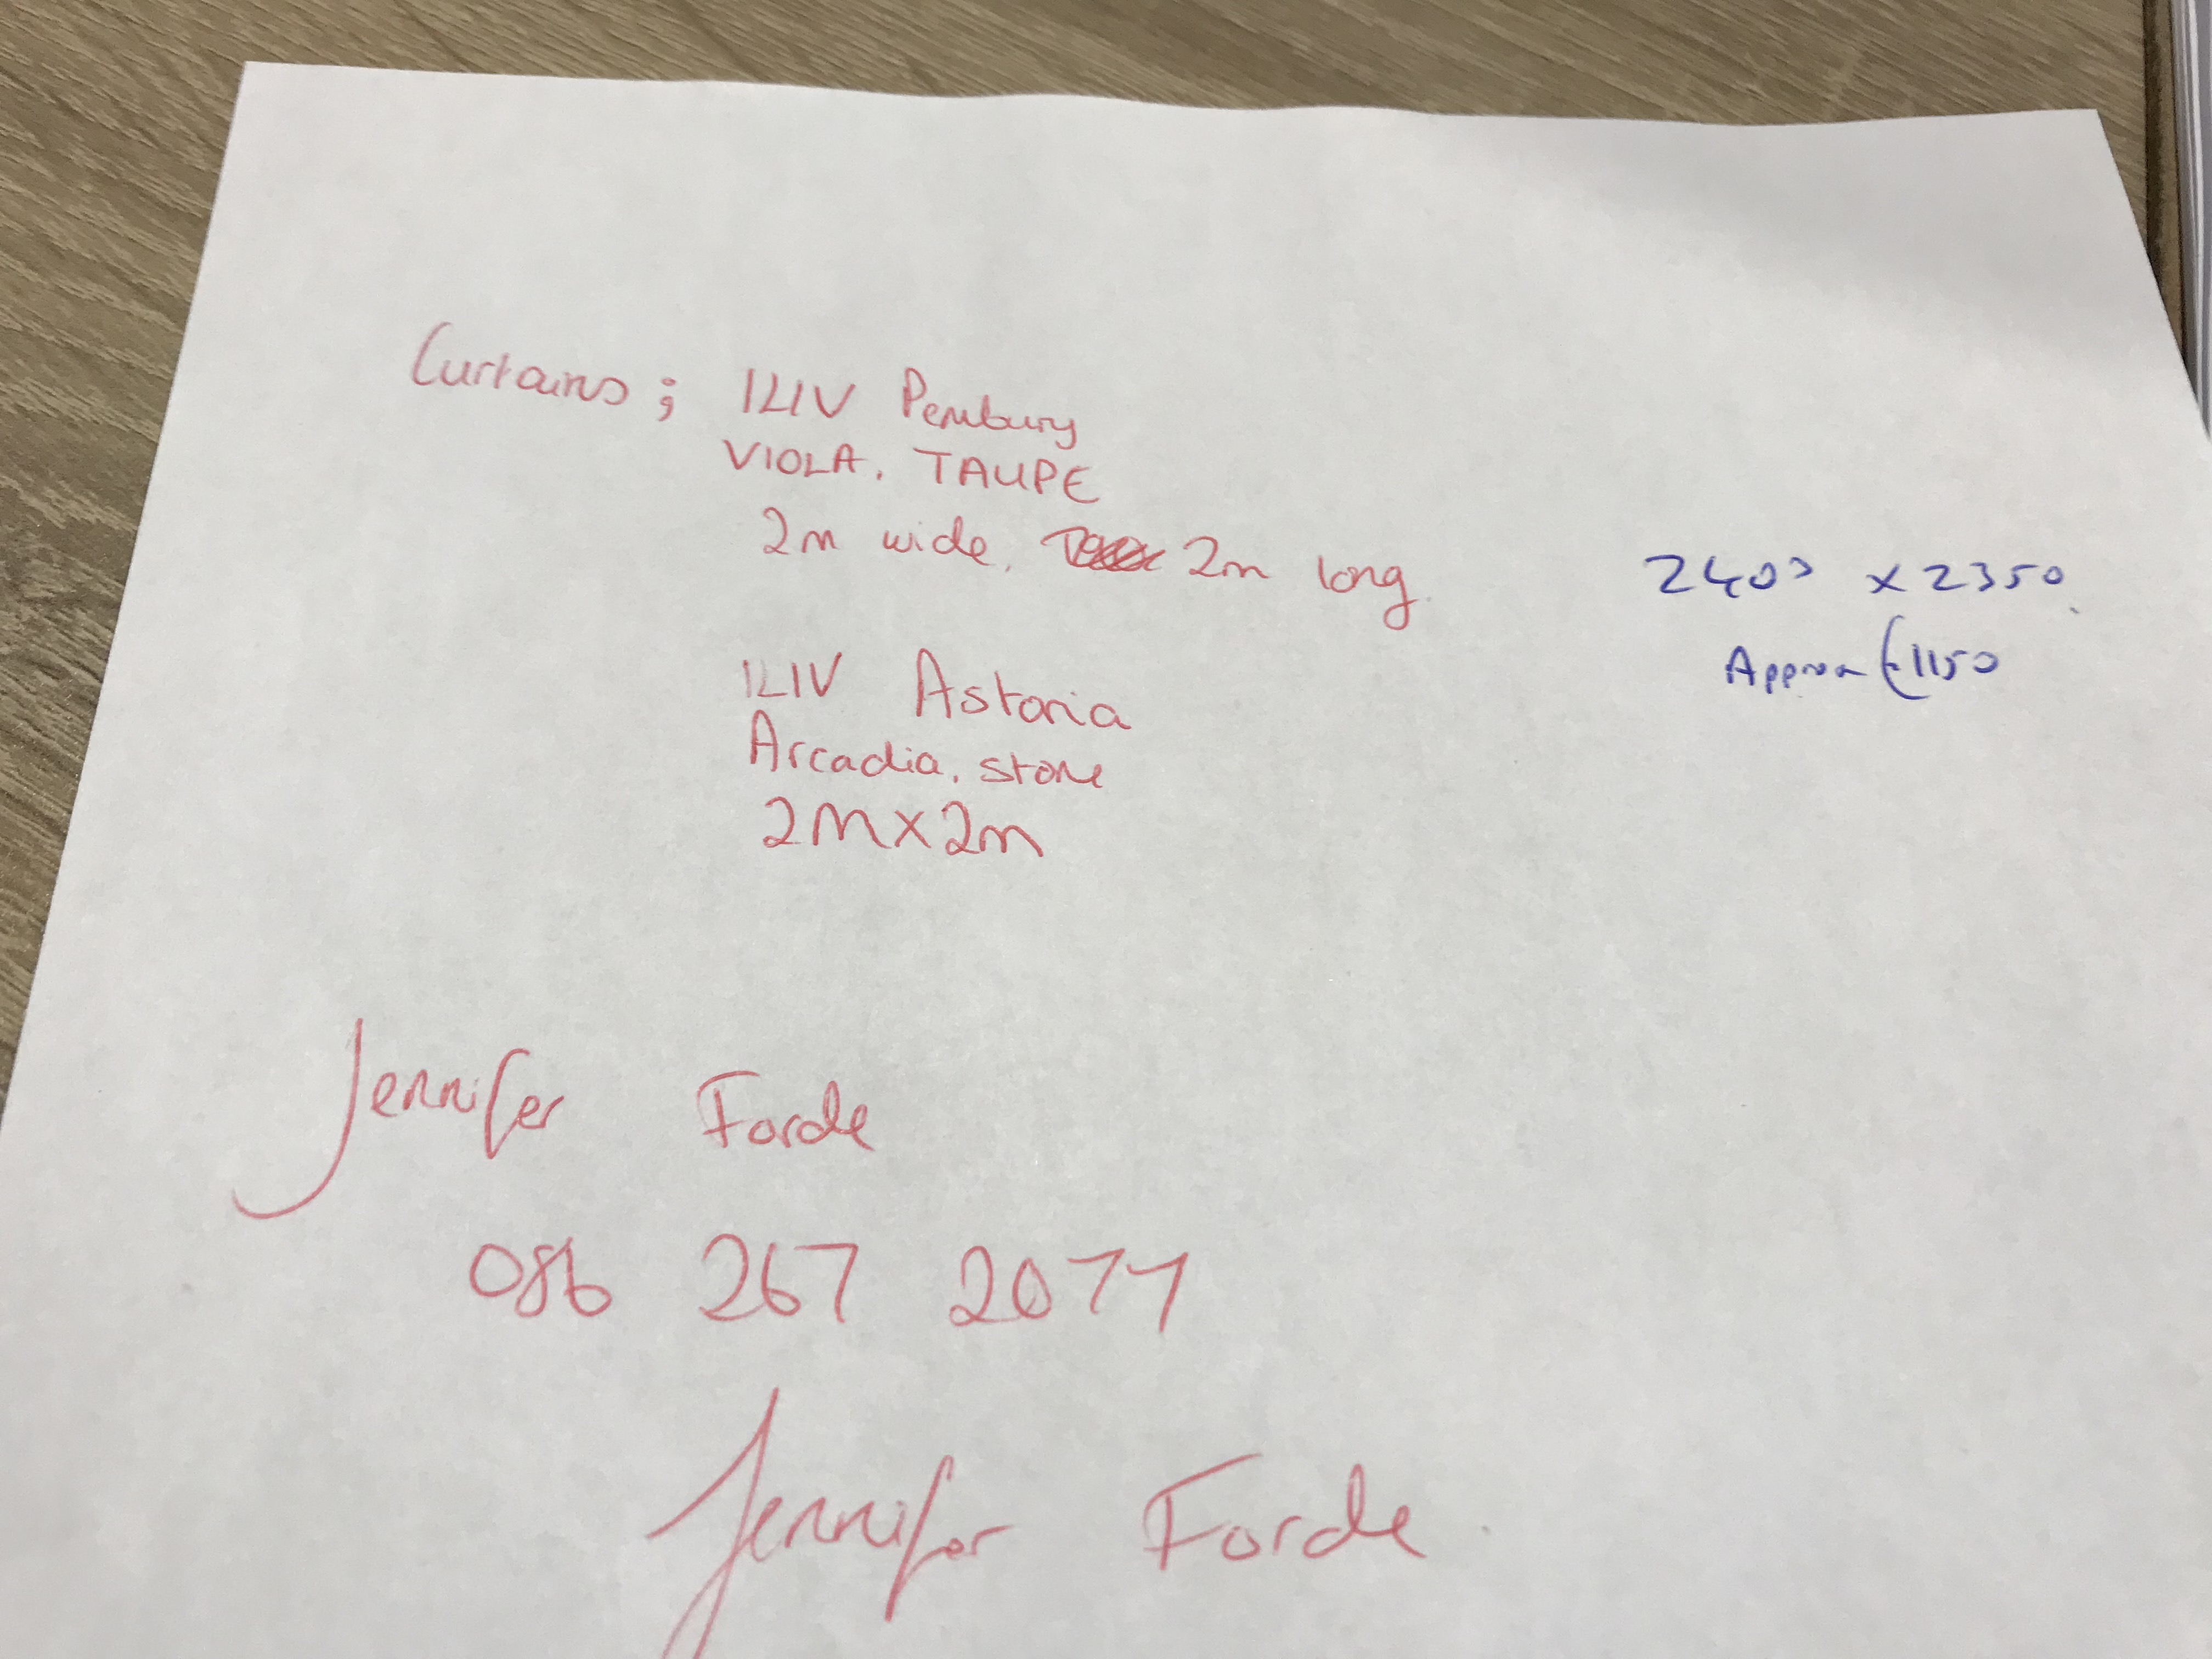 Curtains; ILIV Pembury
VIOLA. TAUPE
2m wide, 2m long
2400 x 2350
Approx €1150
ILIV Astoria
Arcadia. stone
2m x 2m
Jennifer Forde
086 267 2077
Jennifer Forde